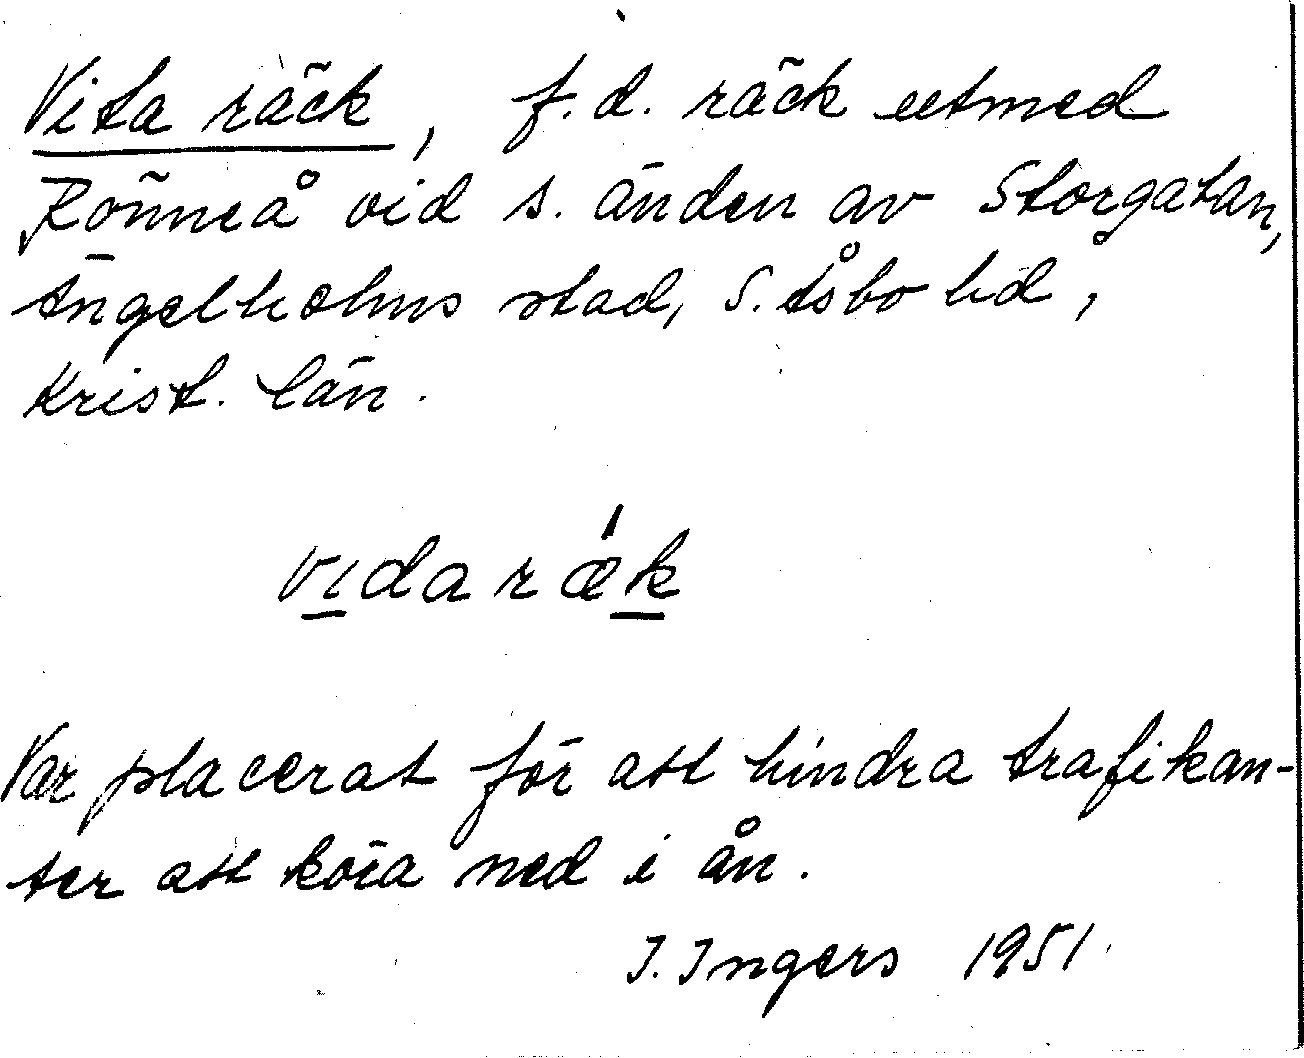 Vita räck, f.d. räck utmed
Rönneå vid s. änden av Storgatan,
Ängelholms stad, S. Åsbo hd,
Krist. län.
vịdarǽk
Var placerat för att hindra trafikan-
ter att köra ned i ån.
I. Ingers 1951